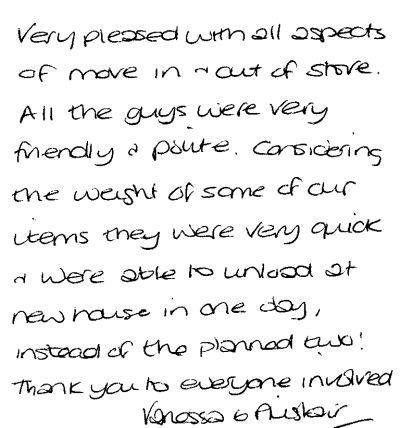 Very pleased with all aspects
of move in & out of store.
All the guys were very
friendly & polite. Considering
the weight of some of our
items they were very quick
& were able to unload at
new house in one day,
instead of the planned two!
Thank you to everyone involved
Vanessa & Alistair